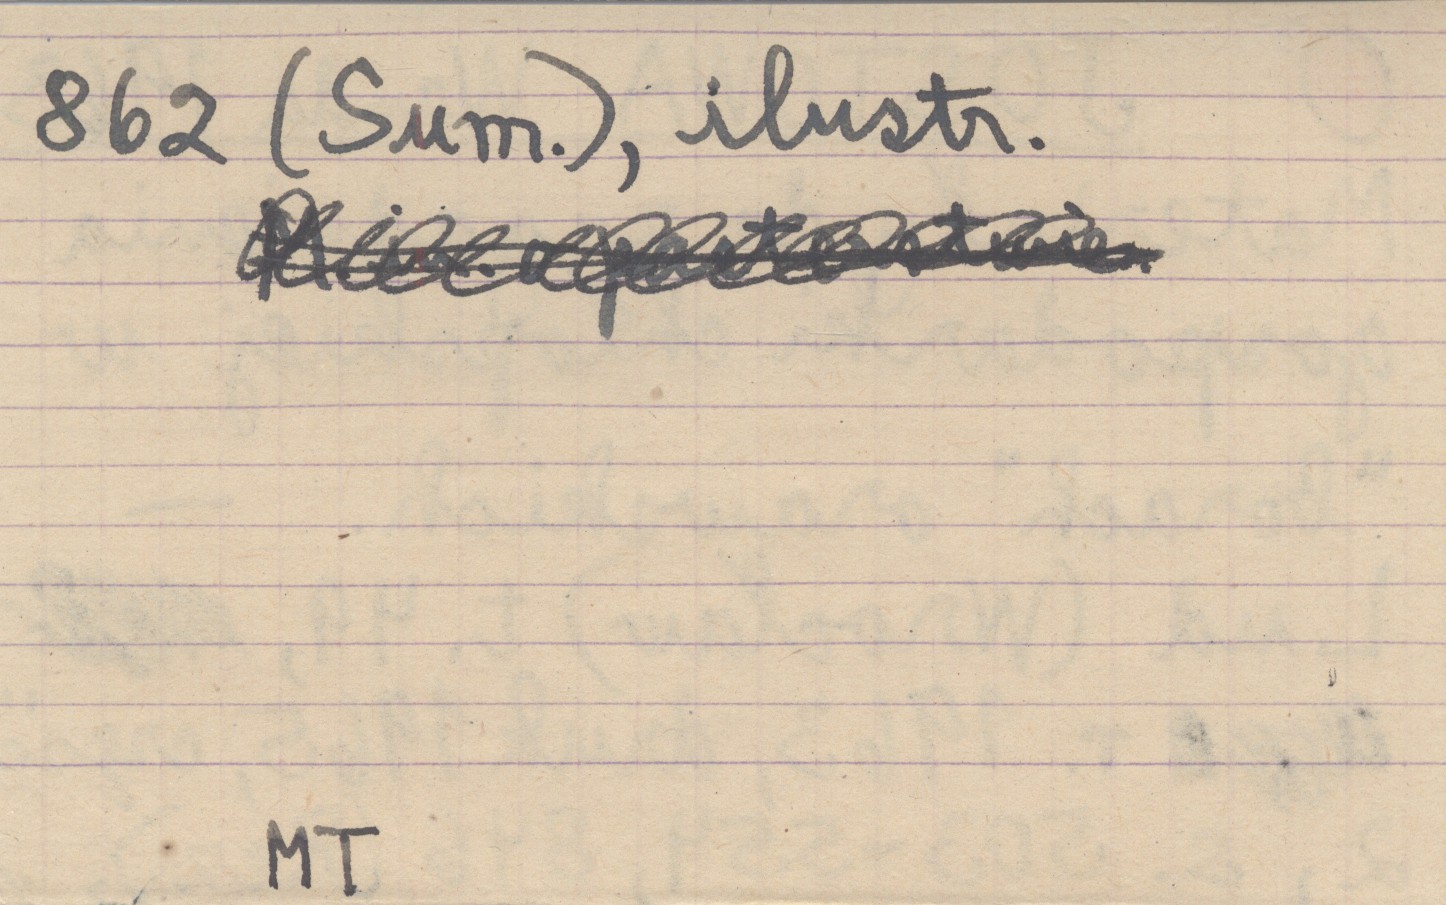 862 (Sum.), ilustr.
MT